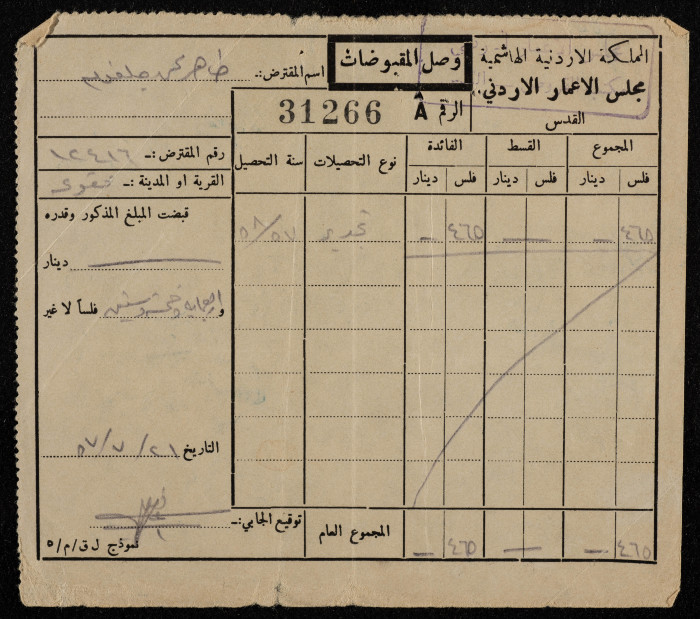 المملكة الاردنية الهاشمية
مجلس الاعمار الاردني
القدس
وصل المقبوضات
الرقم A 31266
اسم المقترض:ـ طاهر محمد
رقم المقترض :ـ ١٢٤١٦
القرية او المدينة :ـ
قبضت المبلغ المذكور وقدره
دينار ـــ
اربعماية وخمسة وستين فلساً لا غير
التاريخ ٢١/٧/٥٧
توقيع الجابي:ـ
نموذج ل ق/م/٥
المجموع القسط الفائدة نوع التحصيلات سنة التحصيل
فلس دينار فلس دينار فلس دينار
٤٦٥ ـ ـــ ٤٦٥ ـ تجديد ٥٨/٥٧
٤٦٥ ـ ـ ٤٦٥ ـ المجموع العام